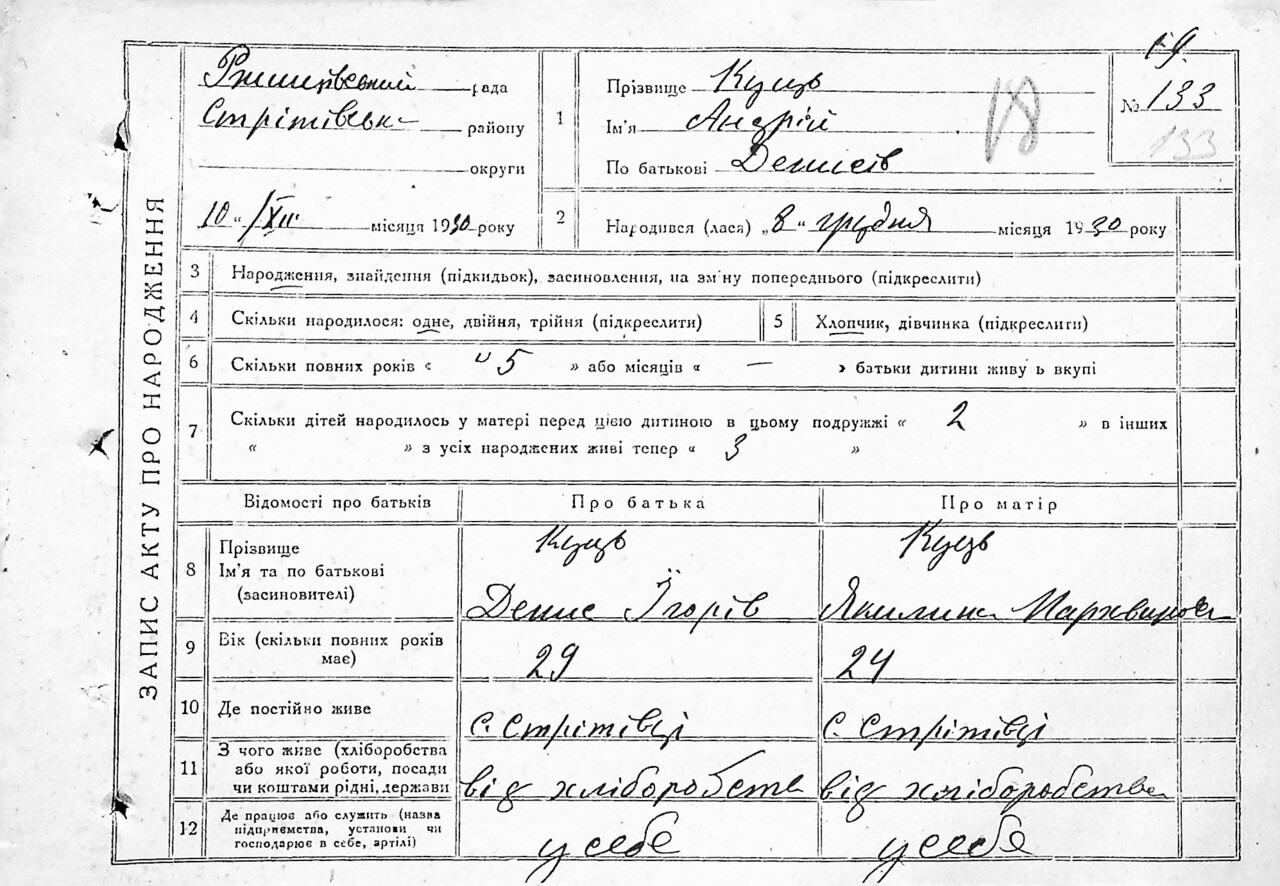 ЗАПИС АКТУ ПРО НАРОДЖЕННЯ
19.
Ржищівський рада
Стрітівськ району
округи
10 " /XII місяця 1930 року
1 Прізвище Куць
Ім'я Андрій
По батькові Денисів
18
№ 133
133
2 Народився (лася) „8" грудня місяця 1930 року
3 Народження, знайдення (підкидьок), засиновлення, на зм'ну попереднього (підкреслити)
4 Скільки народилося: одне, двійня, трійня (підкреслити)
5 Хлопчик, дівчинка (підкреслити)
6 Скільки повних років « 5 » або місяців « — » батьки дитини живу ь вкупі
7 Скільки дітей народилось у матері перед цією дитиною в цьому подружжі « 2 » в інших
« » з усіх народжених живі тепер « 3 »
Відомості про батьків Про батька Про матір
8 Прізвище Ім'я та по батькові (засиновителі)
Куць Денис Їгорів
Куць Якилина Пархвинова
9 Вік (скільки повних років має) 29 24
10 Де постійно живе с. Стрітівці с. Стрітівці
11 З чого живе (хліборобства або якої роботи, посади чи коштами рідні, держави
від хліборобства від хліборобства
12 Де працює або служить (назва підприємства, установи чи господарює в себе, артілі)
у себе у себе